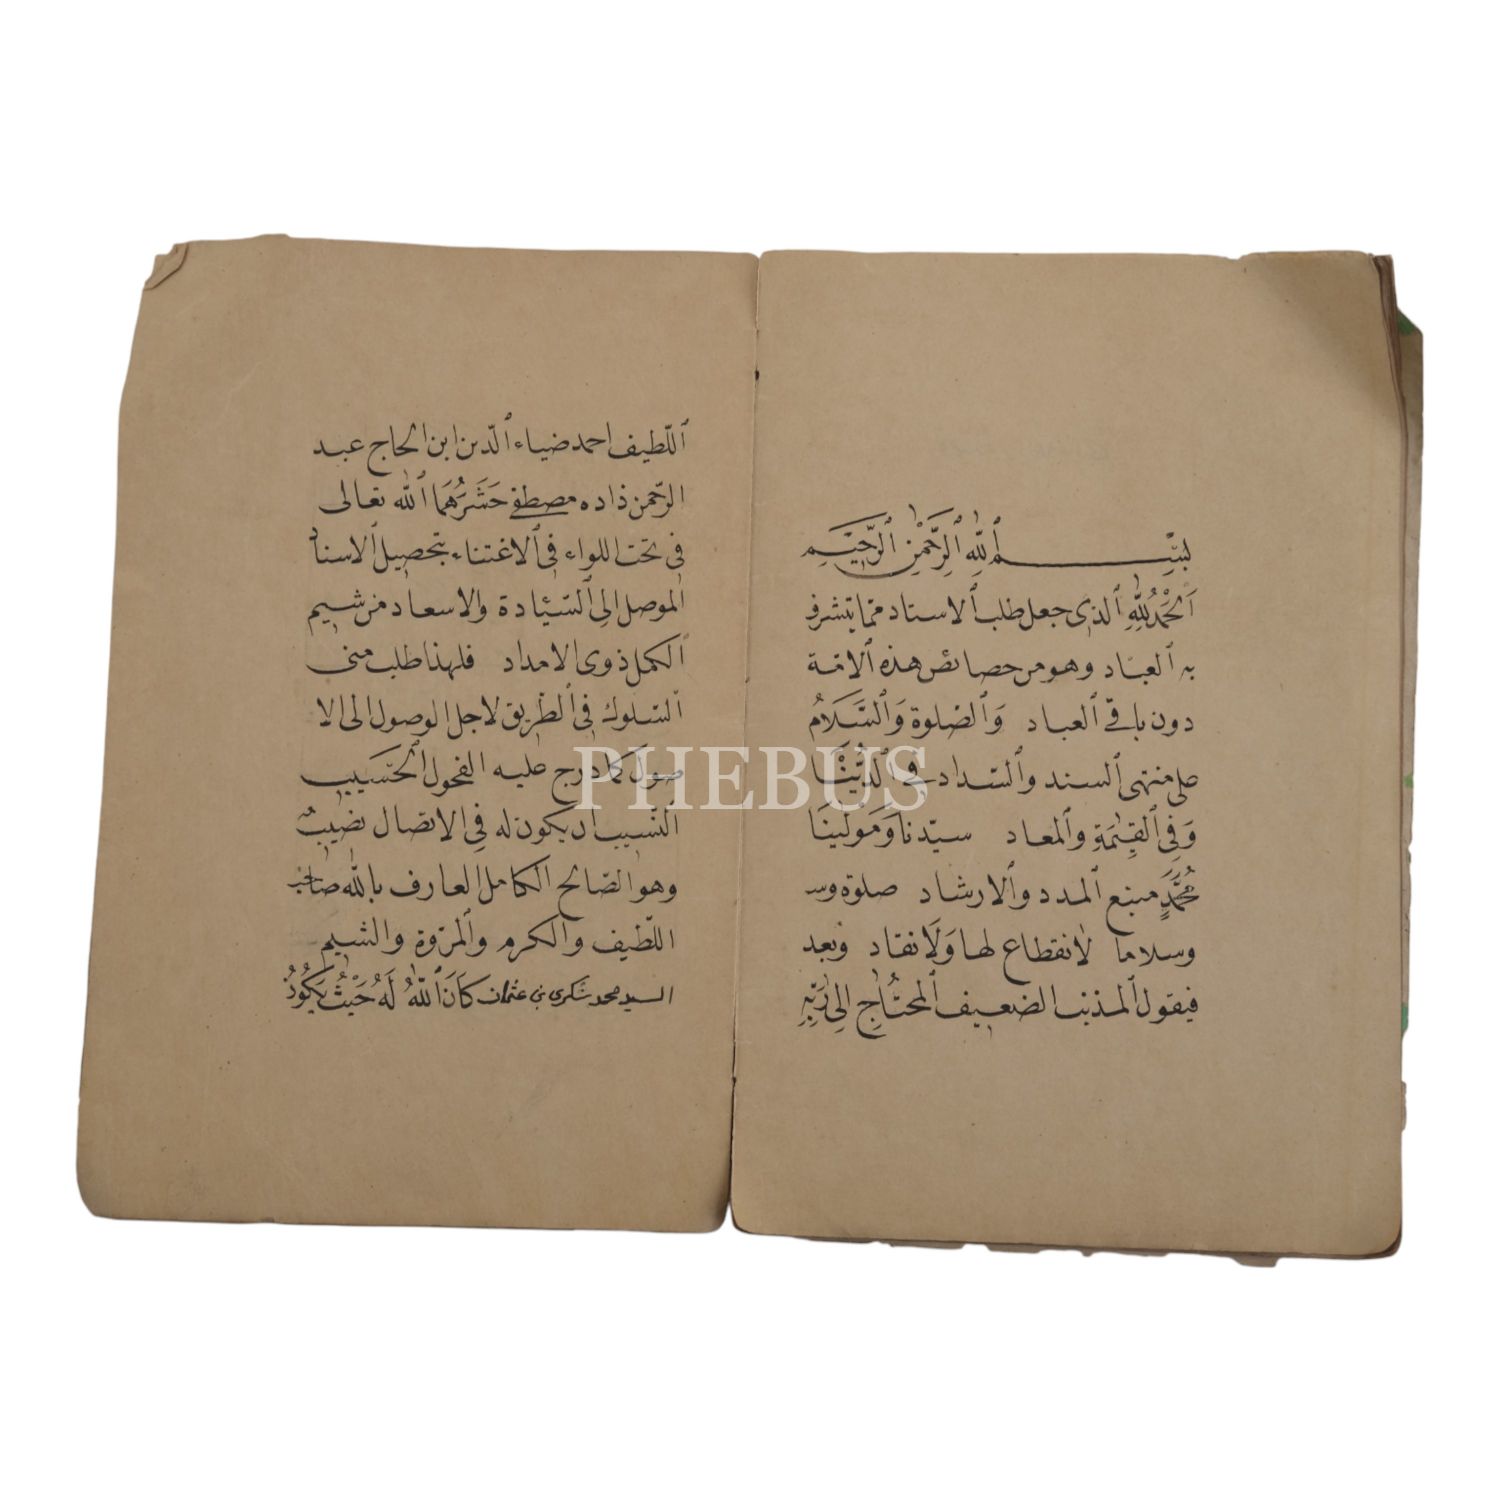 بِسْمِ ٱللهِ ٱلرَّحْمٰنِ ٱلرَّحِيمِ
اَلْحَمْدُ لِلّٰهِ ٱلذى جعل طلب ٱلاستاد ممّا يتشرف
به ٱلعباد وهو من خصائص هذه ٱلامّة
دون باقى ٱلعباد وَٱلصّلوة وَٱلسَّلَامُ
على منتهى ٱلسند وٱلسّداد فى ٱلدُّنْيَا
وَفِى ٱلقِيٰمَةِ وٱلمعاد سيّدنا وَمَوْلٰينَا
مُحَمَّدٍ منبع ٱلمدد وٱلارشاد صلوة وسـ
وسلاما لا نقطاع لها وَلَا نفاد وبعد
فيقول ٱلمذنب الضعيف ٱلمحتاجِ الى رَبِّهِ
ٱللّطيف احمد ضياء ٱلدّين ابن ٱلحاج عبد
الرّحمن زاده مصطفى حَشَرَهُمَا ٱللّٰه تعالى
فى تحت اللواء فى ٱلاغتناء بتحصيل ٱلاسناد
ٱلموصل الى ٱلسّيادة والاسعاد من شيم
ٱلكمل ذوى الامداد فلهذا طلب منى
السّلوك فى ٱلطّريق لاجل الوصول الى الا
صول كما درج عليه الفحول ٱلحسيب
ٱلنّسيب ان يكون له فِى الاتصال نصيب
وهو الصّالح ٱلكامل العارف بالله صاحب
اللّطيف وٱلكرم وٱلمروّة والشيم
السيد محمد شكرى بن عثمان كَانَ ٱللّٰهُ لَهُ حَيْثُ يَكُونُ
PHEBUS